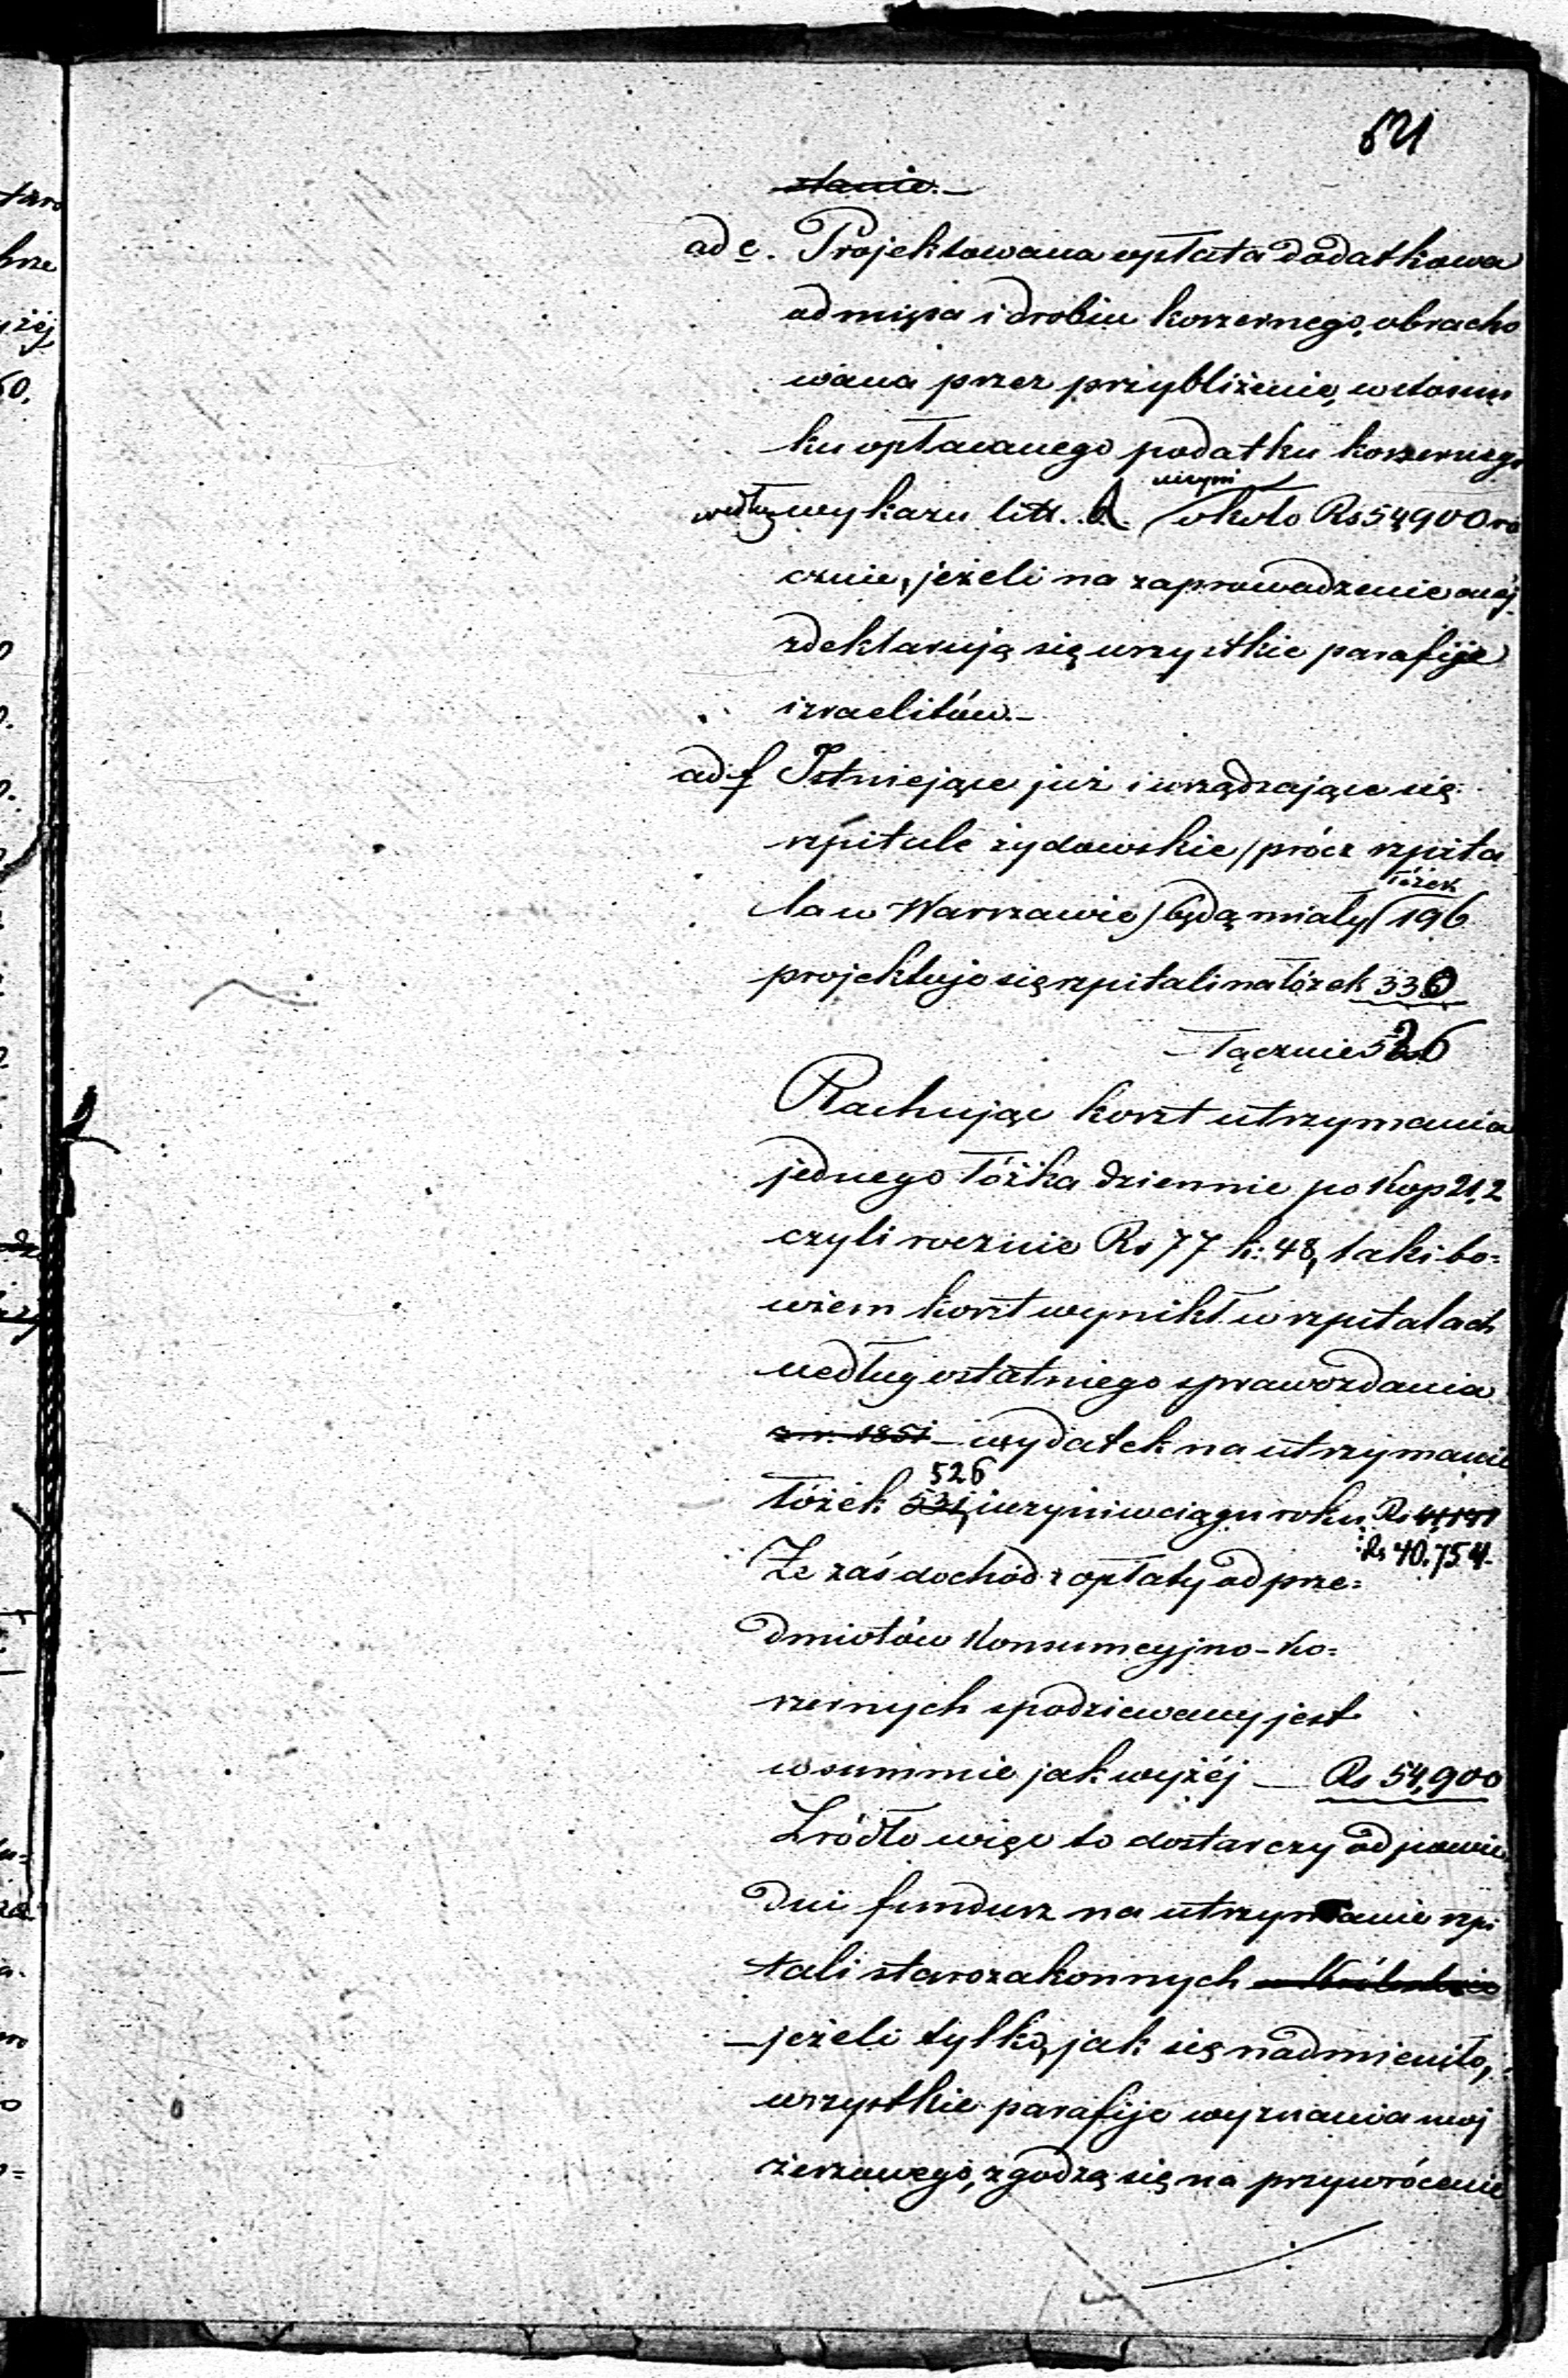 521
stanie.—
ad e. Projektowana opłata dodatkowa
od mięsa i drobiu koszernego, obracho
wana przez przybliżenie, w stosun
ku opłacanego podatku koszernego
uczyni
według wykazu litt. A. około Rs 54,900 ro
cznie, jeżeli na zaprowadzenie onéj
zdeklarują się wszystkie parafije
izraelitów.—
ad f Istniejące już i urządzające się
szpitale żydowskie /prócz szpita
łóżek
la w Warszawie/ będą miały 196
projektuje się szpitali na łóżek 330
łącznie 526
Rachując koszt utrzymania
jednego łóżka dziennie po kop 21,2
czyli rocznie Rs 77 k: 48, taki bo=
wiem koszt wynikł w szpitalach
według ostatniego sprawozdania
z r. 1851 — wydatek na utrzymanie
526
łóżek 531, uczyni w ciągu roku Rs 41,141
Rs 40,754.
Że zaś dochód z opłaty od prze=
dmiotów konsumcyjno-ko=
szernych spodziewany jest
w summie jak wyżéj — Rs 54,900
Źródło więc to dostarczy odpowie
dni fundusz na utrzymanie szpi
tali starozakonnych w Królestwie
— jeżeli tylko, jak się nadmieniło,
wszystkie parafije wyznania moj
żeszowego, zgodzą się na przywrócenie